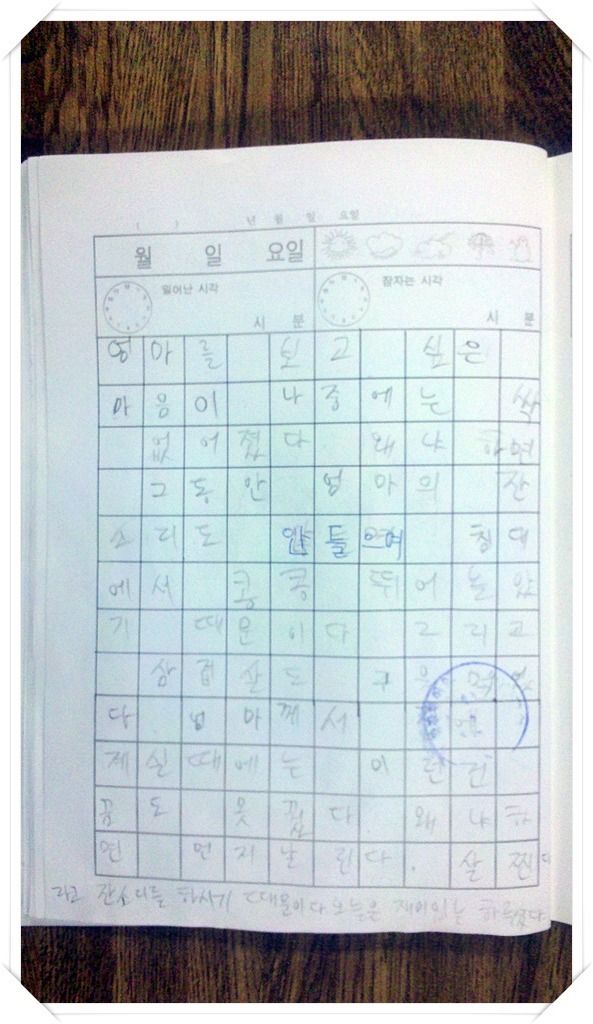 ( ) 년 월 일 요일
월 일 요일
일어난 시각 시 분 잠자는 시각 시 분
엄마를 보고 싶은
마음이 나중에는 싹
없어졌다 왜냐하면
그동안 엄마의 잔
소리도 안들으며 침대
에서 쿵쿵 뛰어놀았
기 때문이다 그리고
삼겹살도 구
다 엄마께서
제실때에는 이런건
꿈도 못꿨다 왜냐하
면 먼지날린다. 살찐다
라고 잔소리를 하시기 때문이다 오늘은 재미있는 하루였다